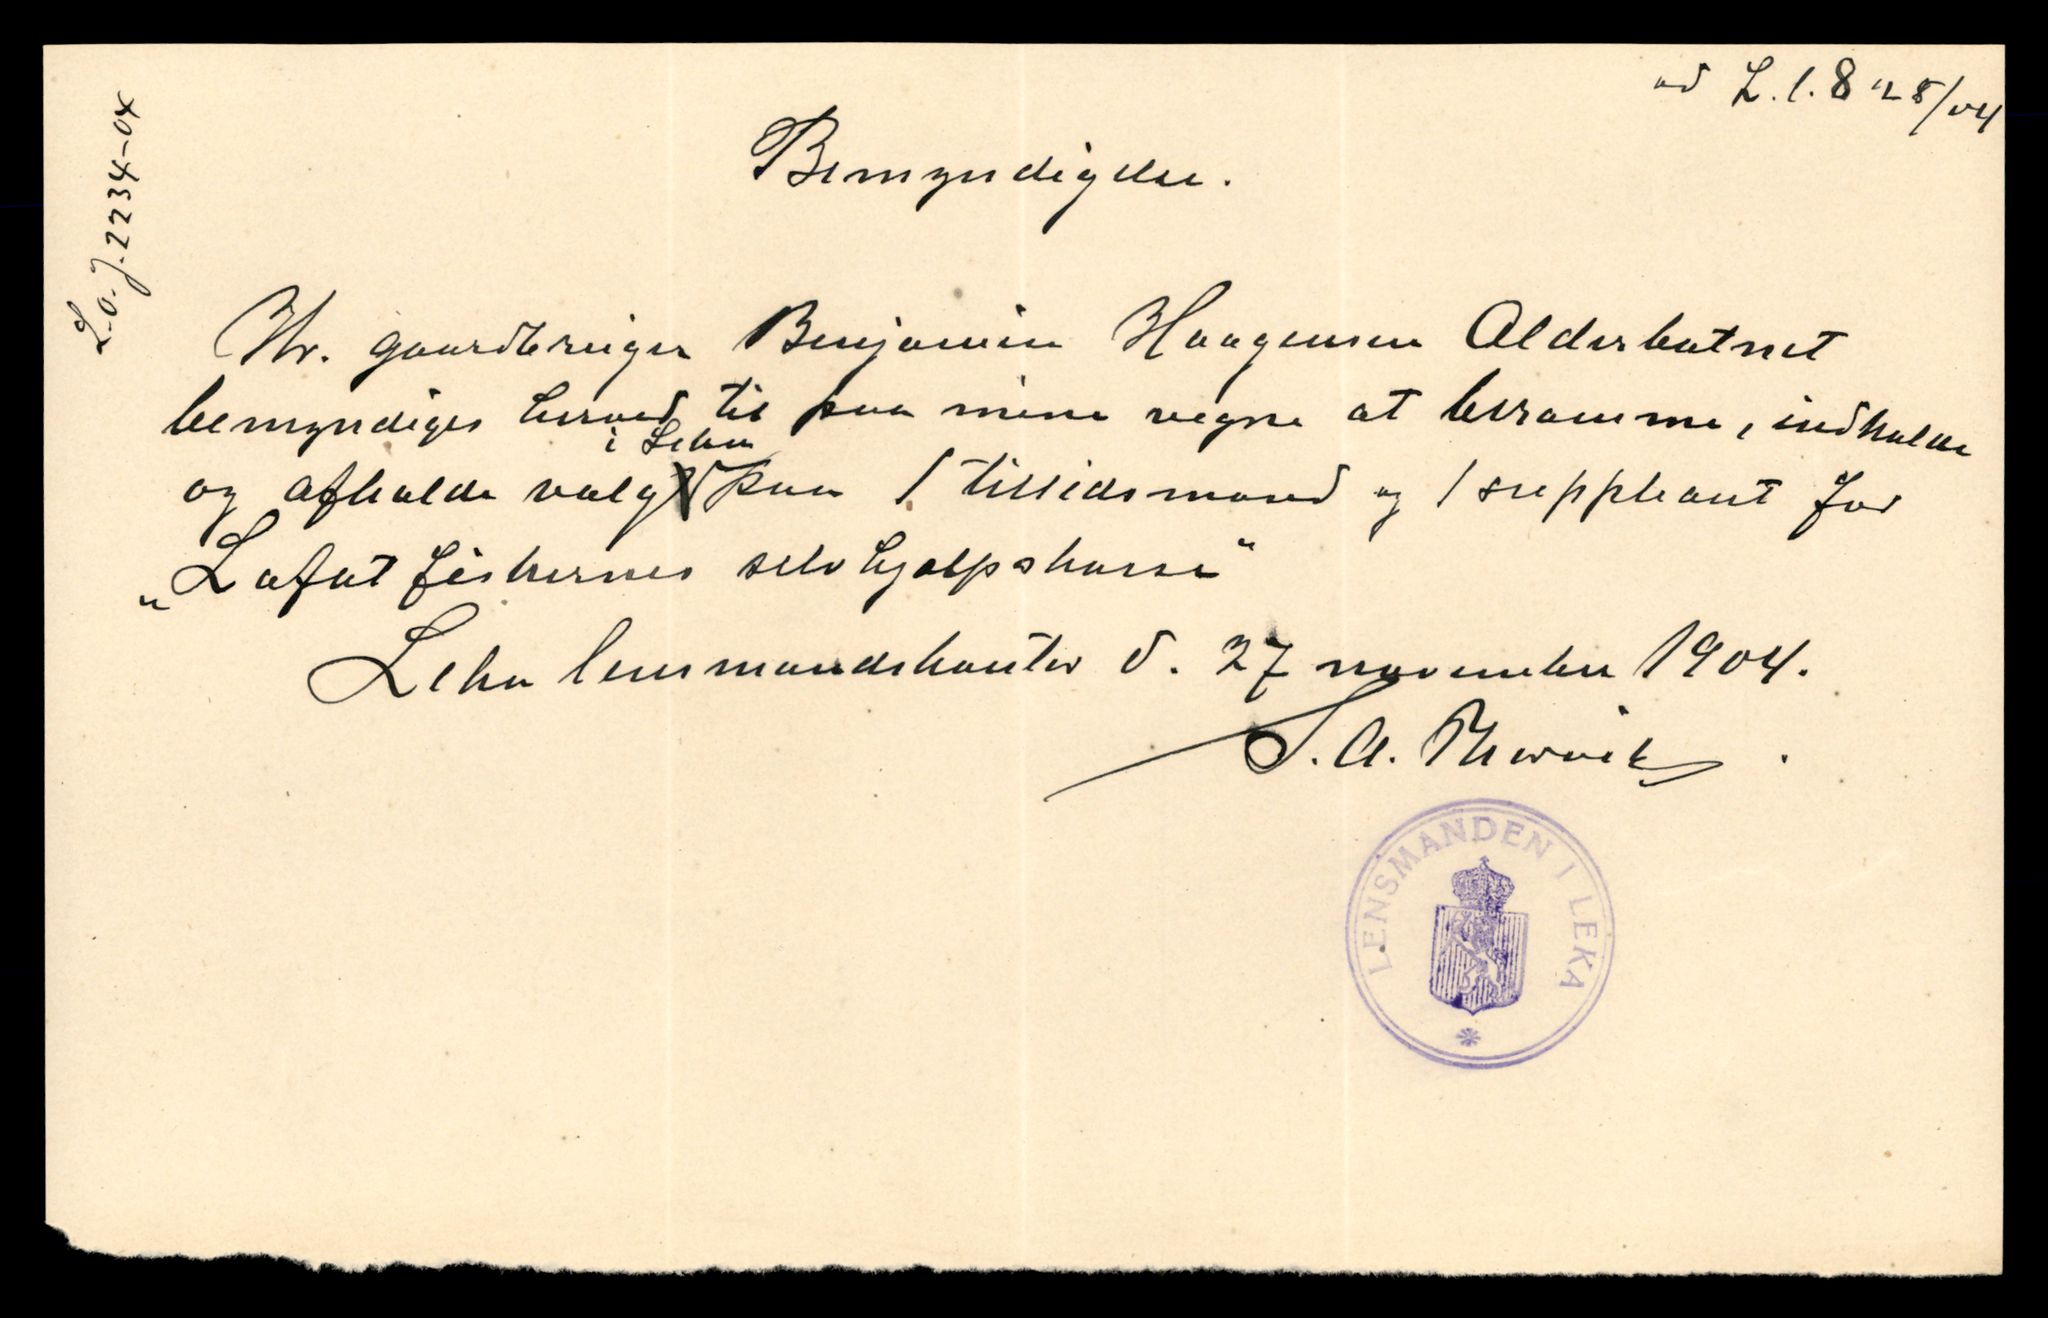 ad L. l. 828/04
L.o.J. 2234-04
Bemyndigelse.
Hr. gaardbruger Benjamin Haagensen Alderbotnet
bemyndiges herved til paa mine vegne at beramme, indkalde
i Leka
og afholde valg paa 1 tillidsmand og 1 suppleant for
"Lofotfiskernes selvhjælpskasse"
Leka lensmandskontor d. 27 november 1904.
S. A.
LENSMANDEN I LEKA